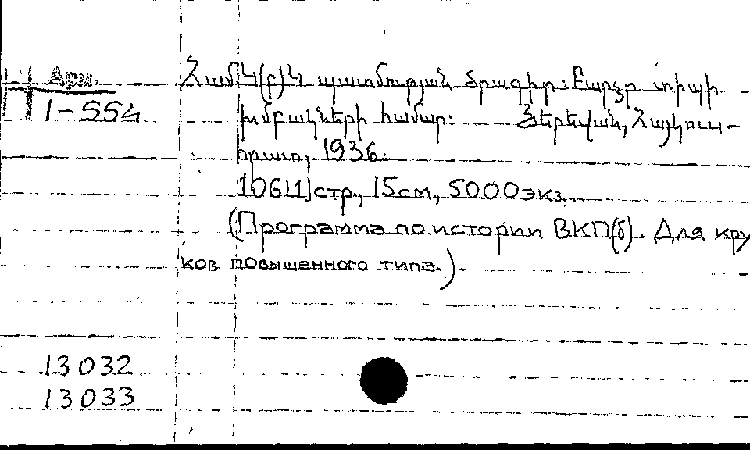 Арм.
1-554
ՀամԿ(բ)Կ պատմության ծրագիր: Բարձր տիպի
խմբակների համար: Յերեվան, Հայկուս-
հրատ, 1936.
106[1] стр., 15см, 5000экз.
(Программа по истории ВКП(б). Для круж
ков повышенного типа.).
13032
13033